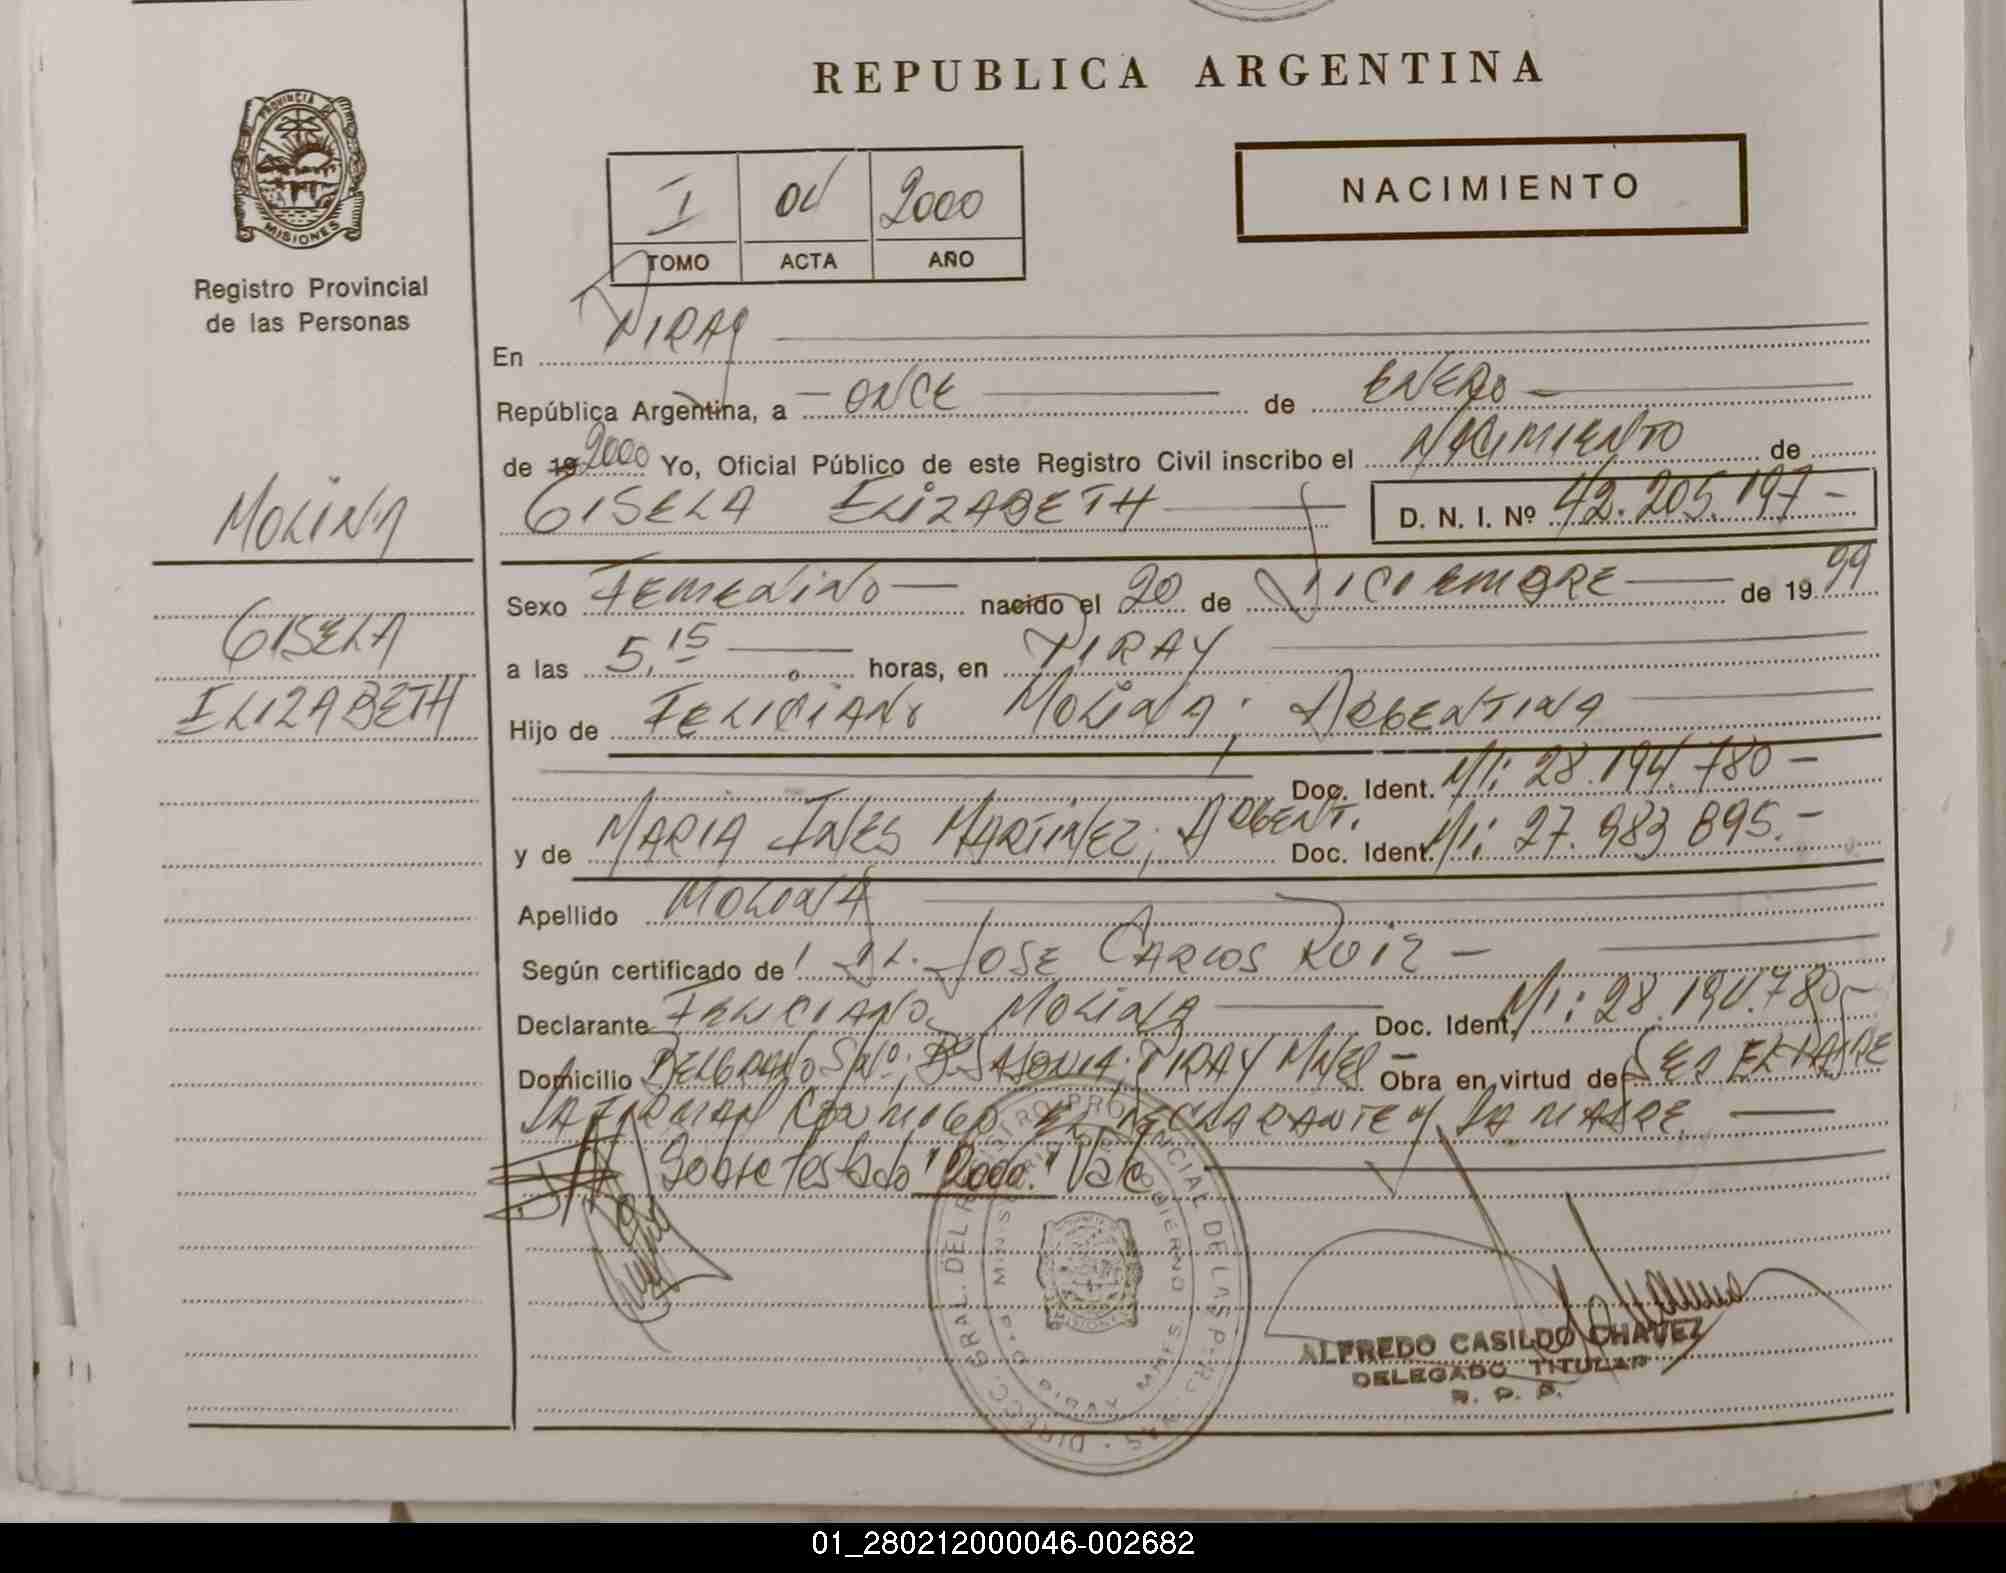 REPUBLICA ARGENTINA
PROVINCIA DE
MISIONES
Registro Provincial
de las Personas
NACIMIENTO
I 04 2000
TOMO ACTA AÑO
En PIRAY
República Argentina, a ONCE de ENERO
de 19 2000 Yo, Oficial Público de este Registro Civil inscribo el NACIMIENTO de
MOLINA
GISELA ELIZABETH D. N. I. Nº 42.205.197-
Sexo FEMENINO nacido el 20 de DICIEMBRE de 19 99
GISELA
a las 5,15 horas, en PIRAY
ELIZABETH
Hijo de FELICIANO MOLINA; ARGENTINA
Doc. Ident. MI: 28.194.780-
y de MARIA INES MARTINEZ; ARGENT. Doc. Ident. MI: 27.983.895.-
Apellido MOLINA
Según certificado de JOSE CARLOS RUIZ-
Declarante FELICIANO MOLINA Doc. Ident. MI: 28.194.780-
Domicilio BELGRANO S/Nº; Bº SAJONIA; PIRAY MNES- Obra en virtud de SER EL PADRE
FIRMAN CONMIGO EL DECLARANTE Y LA MADRE.
Sobre testado "2000." Vale
DIRECC. GRAL. DEL REGISTRO PROVINCIAL DE LAS PERS
ALFREDO CASILDO CHAVEZ
DELEGADO TITULAR
R. P. P.
01_280212000046-002682